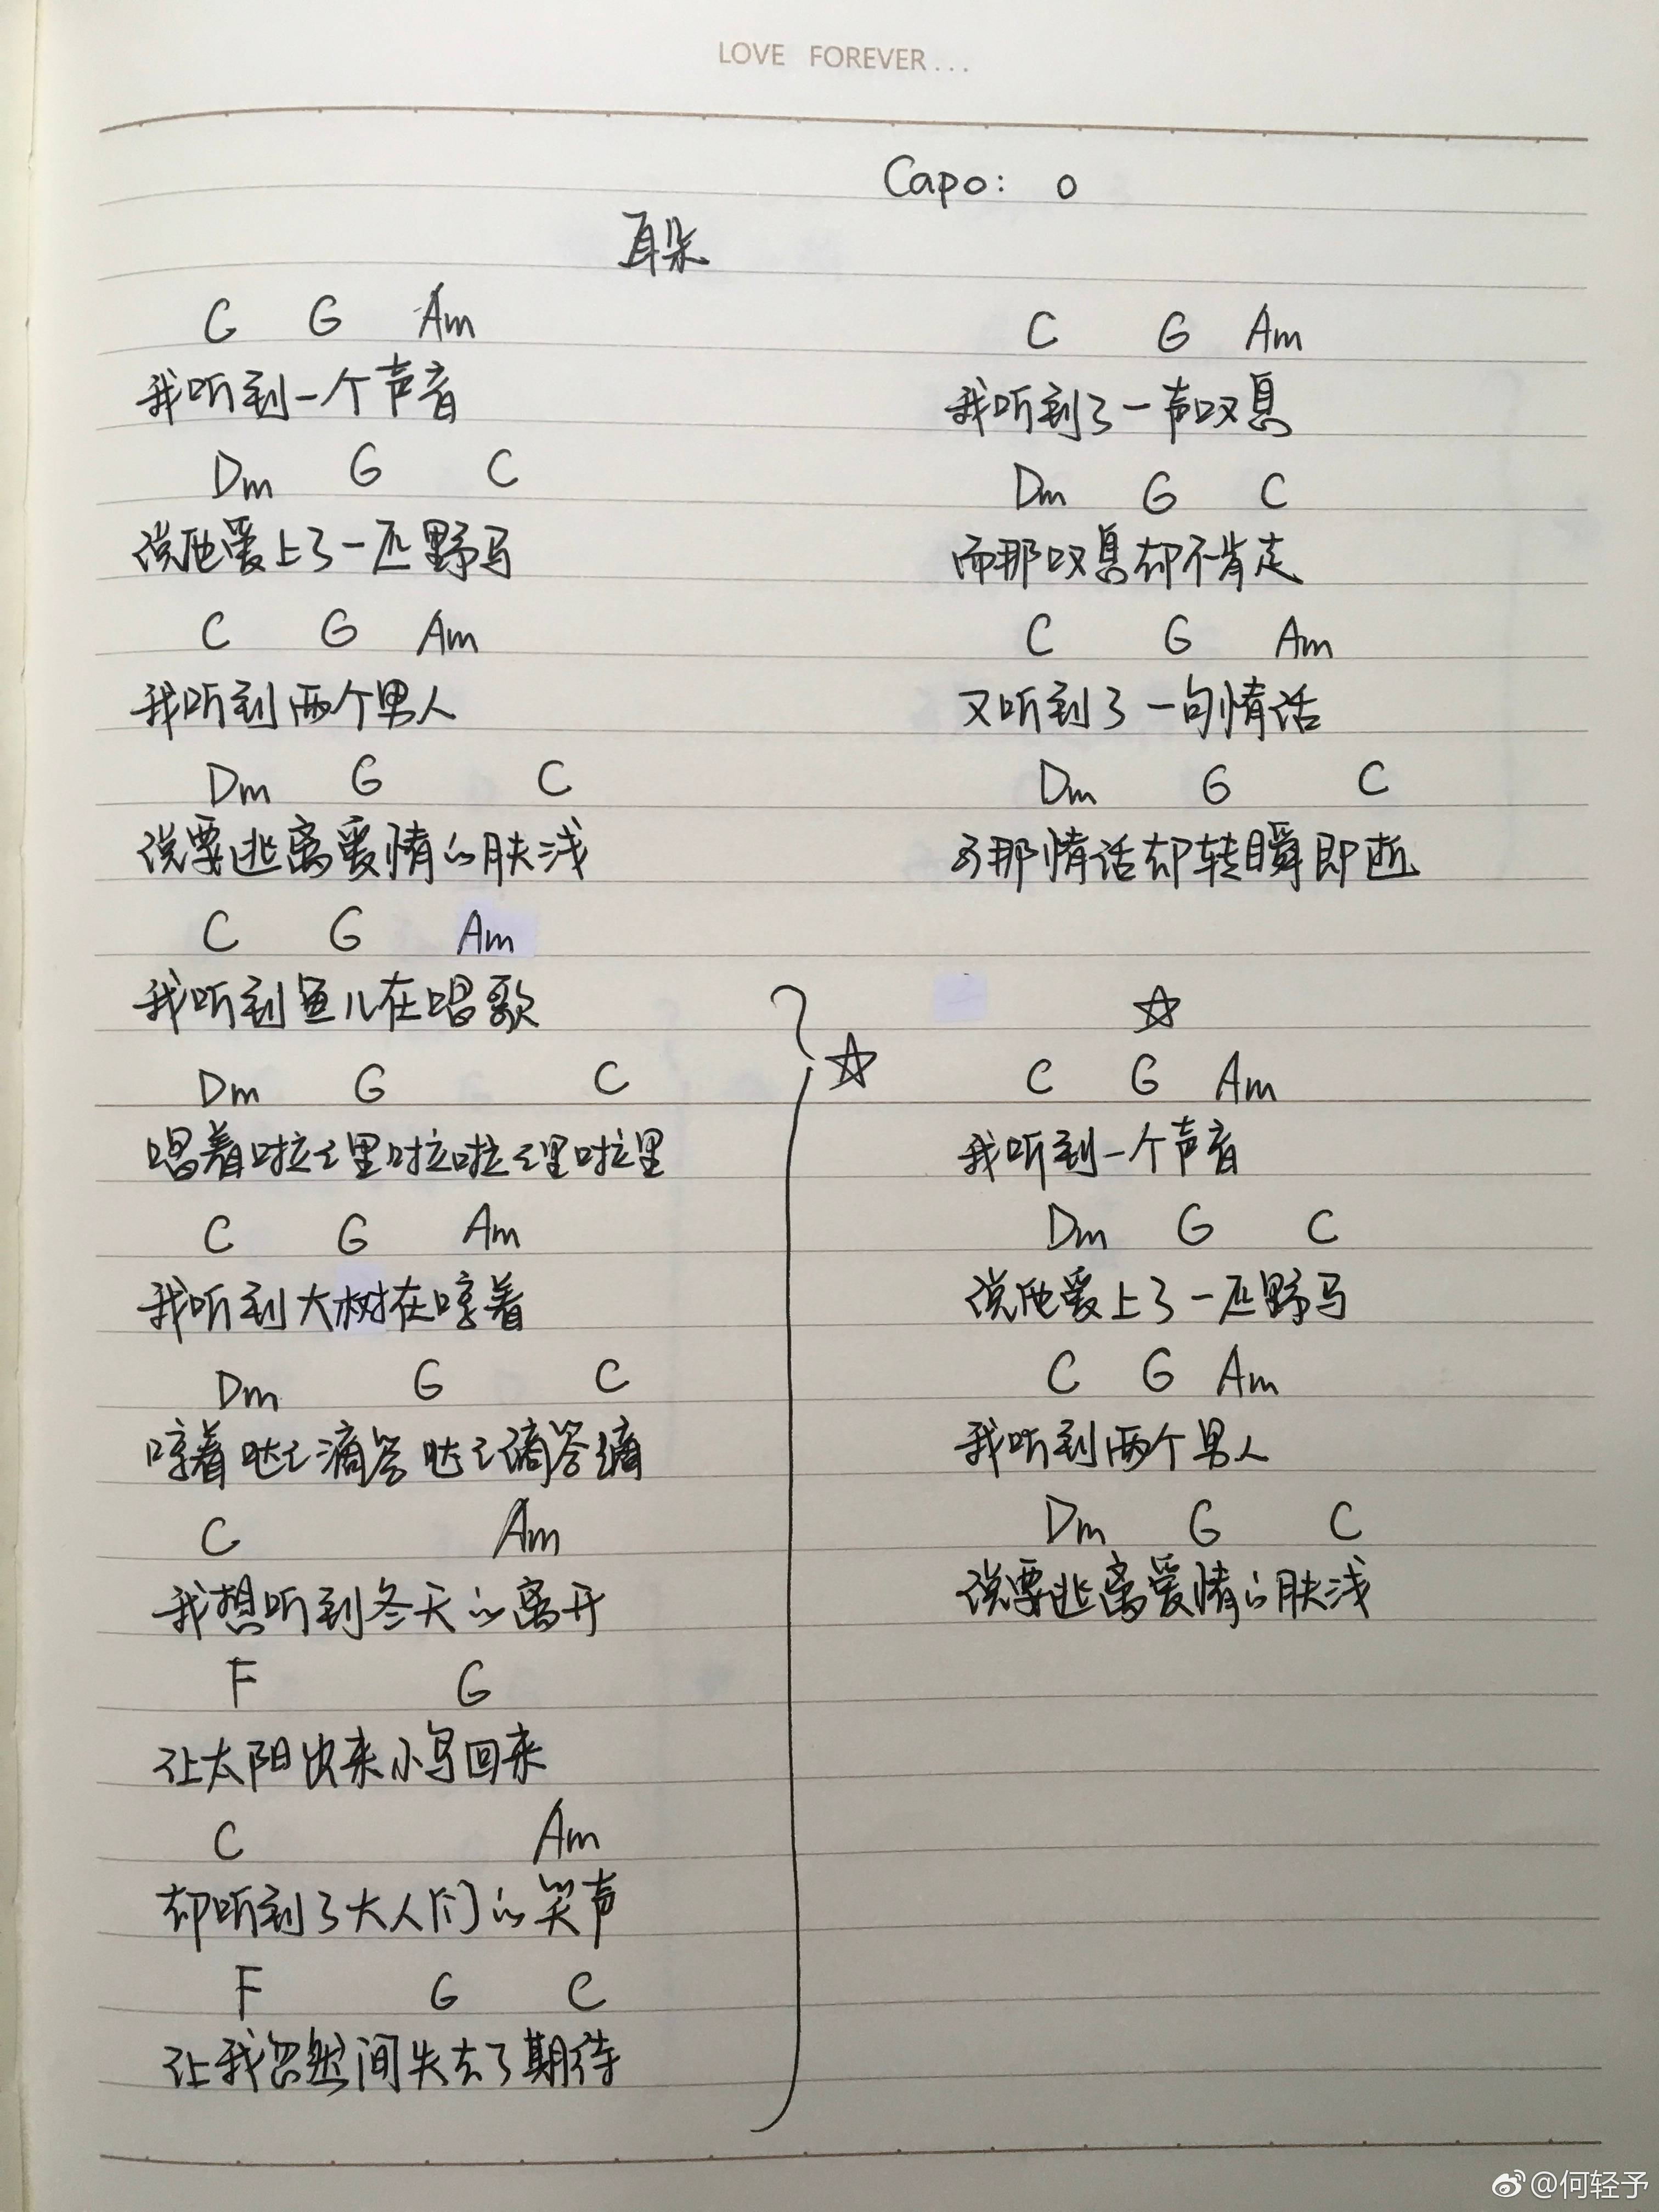 LOVE FOREVER...
Capo: 0
耳朵
C G Am
我听到一个声音
Dm G C
说他爱上了一匹野马
C G Am
我听到两个男人
Dm G C
说要逃离爱情的肤浅
C G Am
我听到鱼儿在唱歌
Dm G C
唱着啦々里啦啦々里啦里
C G Am
我听到大树在哼着
Dm G C
哼着哒々滴答哒々滴答滴
C Am
我想听到冬天的离开
F G
让太阳出来小鸟回来
C Am
却听到了大人们的笑声
F G C
让我忽然间失去了期待
☆
C G Am
我听到了一声叹息
Dm G C
而那叹息却不肯走
C G Am
又听到了一句情话
Dm G C
可那情话却转瞬即逝
☆
C G Am
我听到一个声音
Dm G C
说他爱上了一匹野马
C G Am
我听到两个男人
Dm G C
说要逃离爱情的肤浅
@何轻予